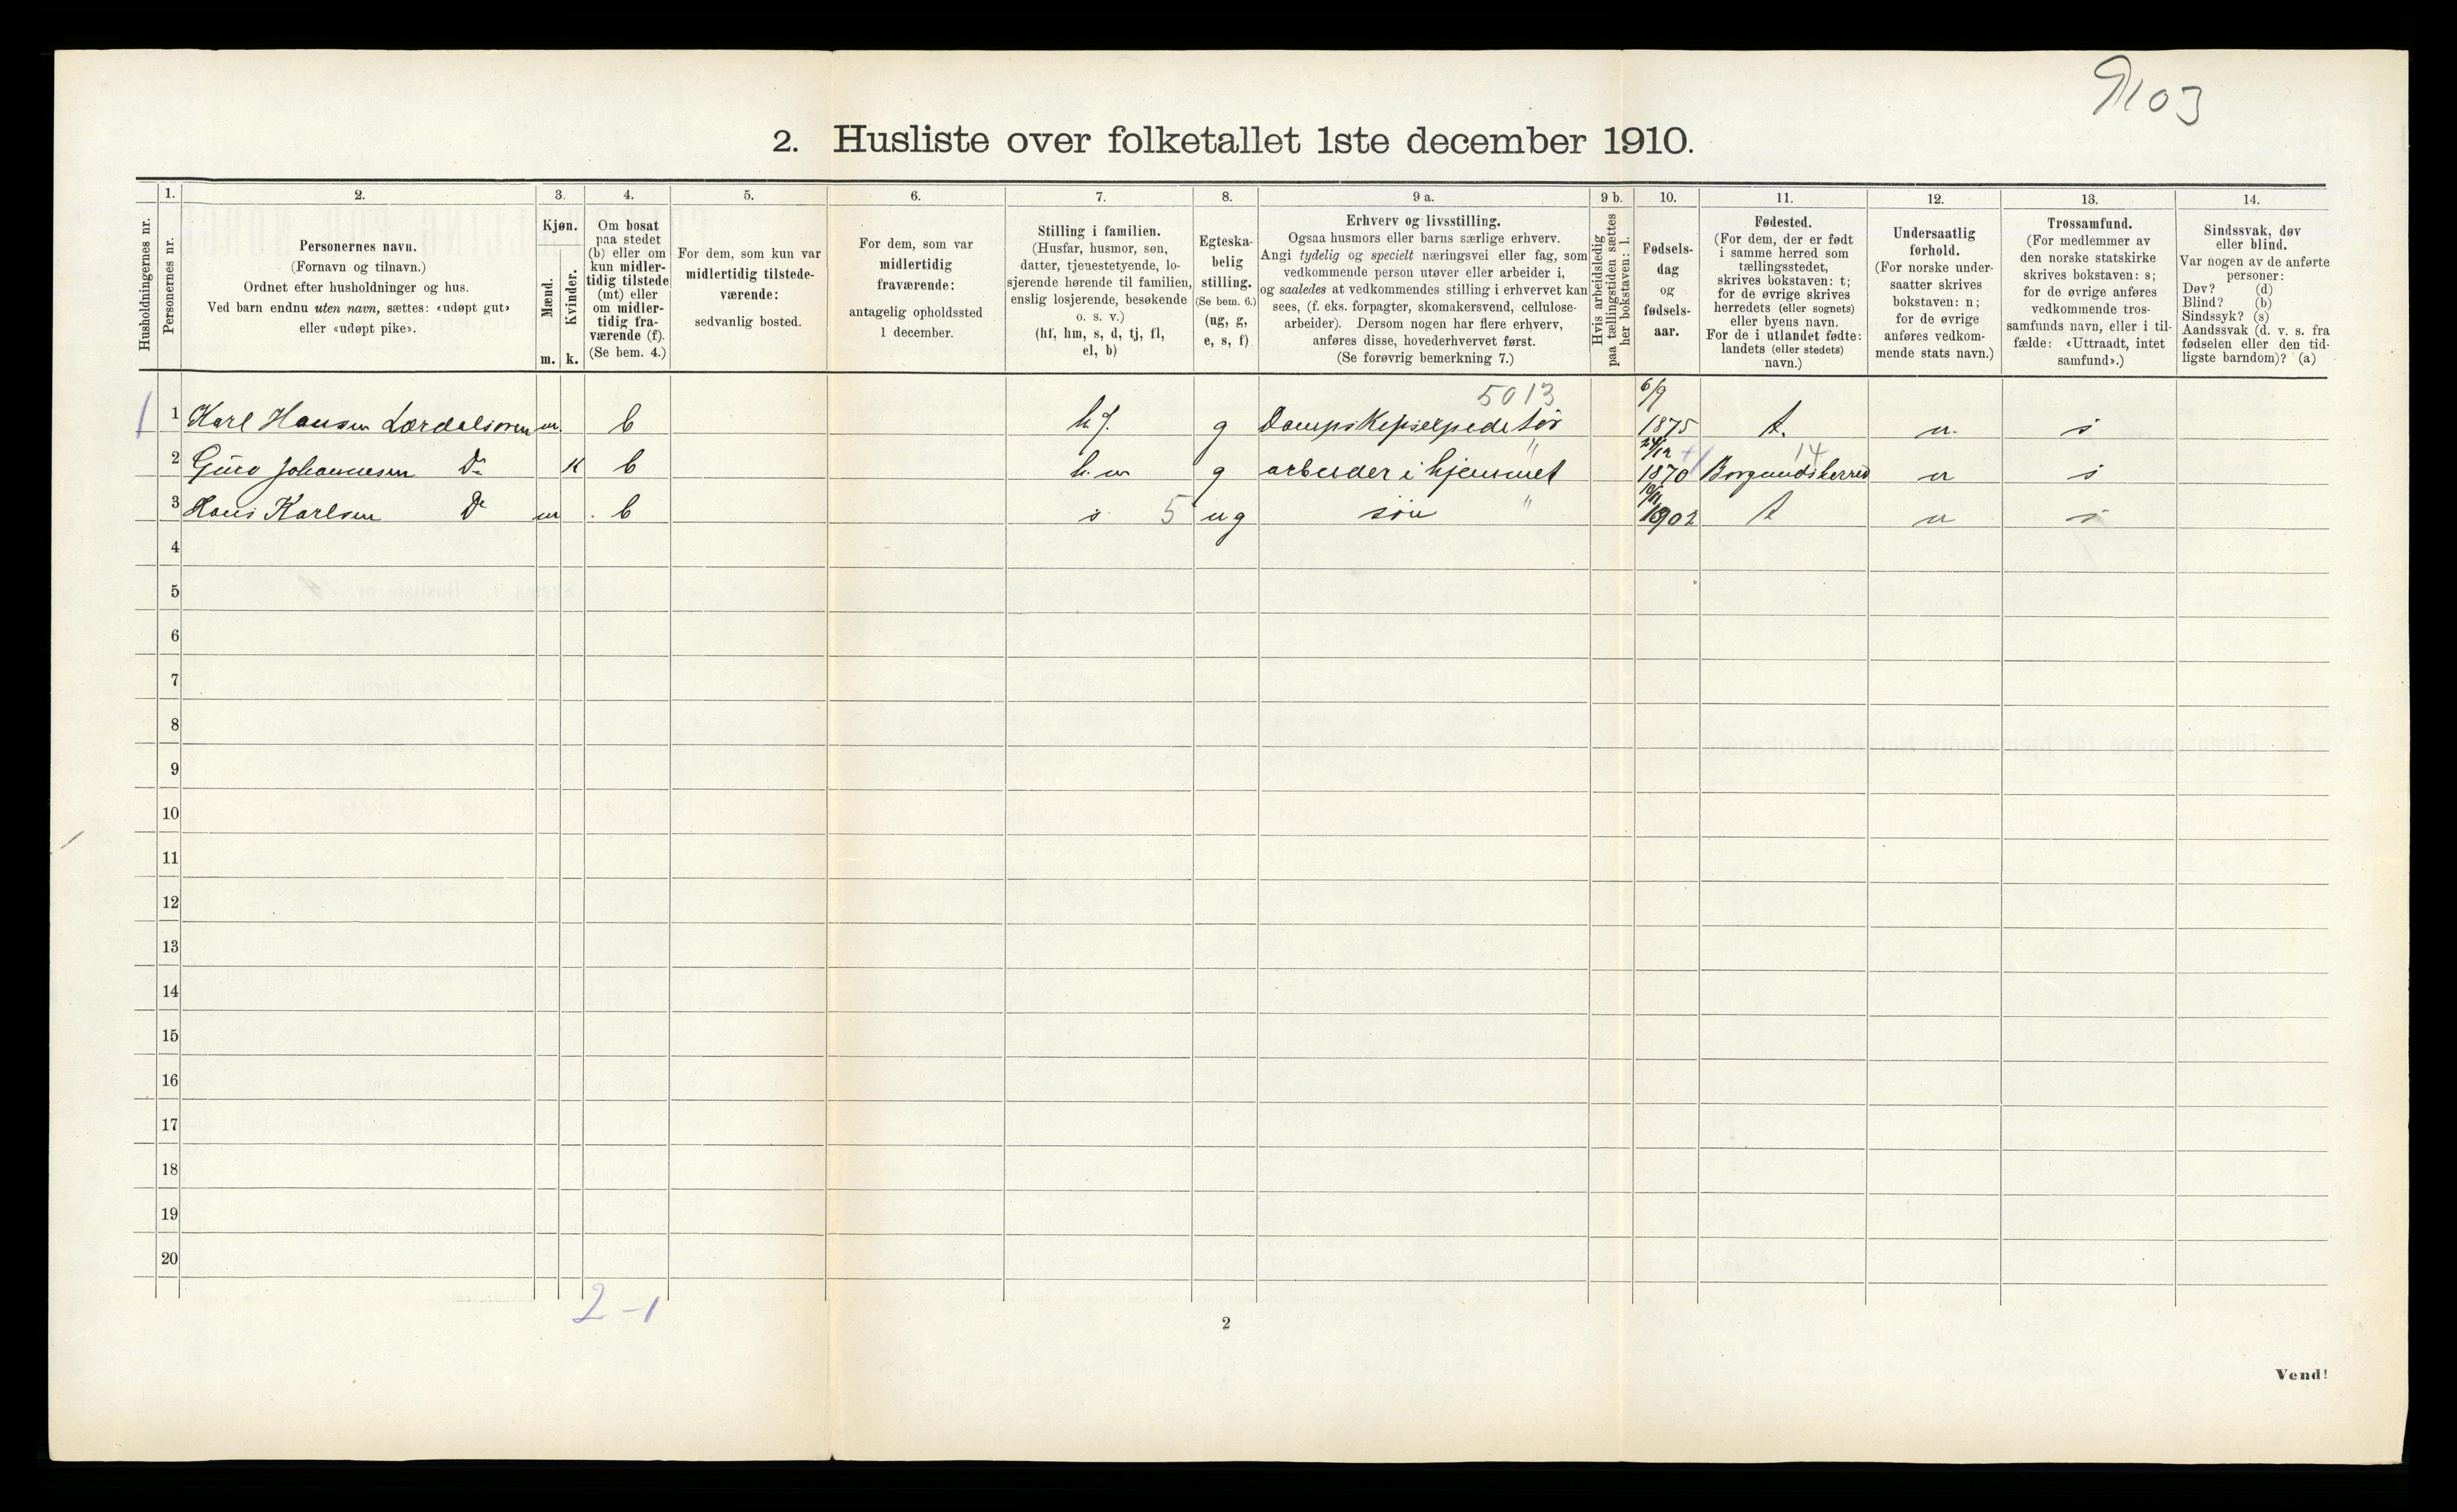 9103
2. Husliste over folketallet 1ste december 1910.
Husholdningernes nr.
1.
Personernes nr.
2.
Personernes navn.
(Fornavn og tilnavn.)
Ordnet efter husholdninger og hus.
Ved barn endnu uten navn, sættes: «udøpt gut»
eller «udøpt pike».
3.
Kjøn.
Mænd.
Kvinder.
m. k.
4.
Om bosat
paa stedet
(b) eller om
kun midler-
tidig tilstede
(mt) eller
om midler-
tidig fra-
værende (f).
(Se bem. 4.)
5.
For dem, som kun var
midlertidig tilstede-
værende:
sedvanlig bosted.
6.
For dem, som var
midlertidig
fraværende:
antagelig opholdssted
1 december.
7.
Stilling i familien.
(Husfar, husmor, søn,
datter, tjenestetyende, lo-
sjerende hørende til familien,
enslig losjerende, besøkende
o. s. v.)
(hf, hm, s, d, tj, fl,
el, b)
8.
Egteska-
belig
stilling.
(Se bem. 6.)
(ug, g,
e, s, f)
9 a.
Erhverv og livsstilling.
Ogsaa husmors eller barns særlige erhverv.
Angi tydelig og specielt næringsvei eller fag, som
vedkommende person utøver eller arbeider i,
og saaledes at vedkommendes stilling i erhvervet kan
sees, (f. eks. forpagter, skomakersvend, cellulose-
arbeider). Dersom nogen har flere erhverv,
anføres disse, hovederhvervet først.
(Se forøvrig bemerkning 7.)
9 b.
Hvis arbeidsledig
paa tællingstiden sættes
her bokstaven: l.
10.
Fødsels-
dag
og
fødsels-
aar.
11.
Fødested.
(For dem, der er født
i samme herred som
tællingsstedet,
skrives bokstaven: t;
for de øvrige skrives
herredets (eller sognets)
eller byens navn.
For de i utlandet fødte:
landets (eller stedets)
navn.)
12.
Undersaatlig
forhold.
(For norske under-
saatter skrives
bokstaven: n;
for de øvrige
anføres vedkom-
mende stats navn.)
13.
Trossamfund.
(For medlemmer av
den norske statskirke
skrives bokstaven: s;
for de øvrige anføres
vedkommende tros-
samfunds navn, eller i til-
fælde: «Uttraadt, intet
samfund».)
14.
Sindssvak, døv
eller blind.
Var nogen av de anførte
personer:
Døv? (d)
Blind? (b)
Sindssyk? (s)
Aandssvak (d. v. s. fra
fødselen eller den tid-
ligste barndom)? (a)
5013 6/9
1 1 Karl Hansen Lærdalsøren m b hf. g Dampskipsexpeditør 1875 t. n. s
24/12 14
2 Guro Johannesen Do k b hm g arbeider i hjemmet " 1870 Borgunds herred n s
3 Hans Karlsen Do m b s 5 ug søn " 1902 t n s
4
5
6
7
8
9
10
11
12
13
14
15
16
17
18
19
20
2-1
2
Vend!